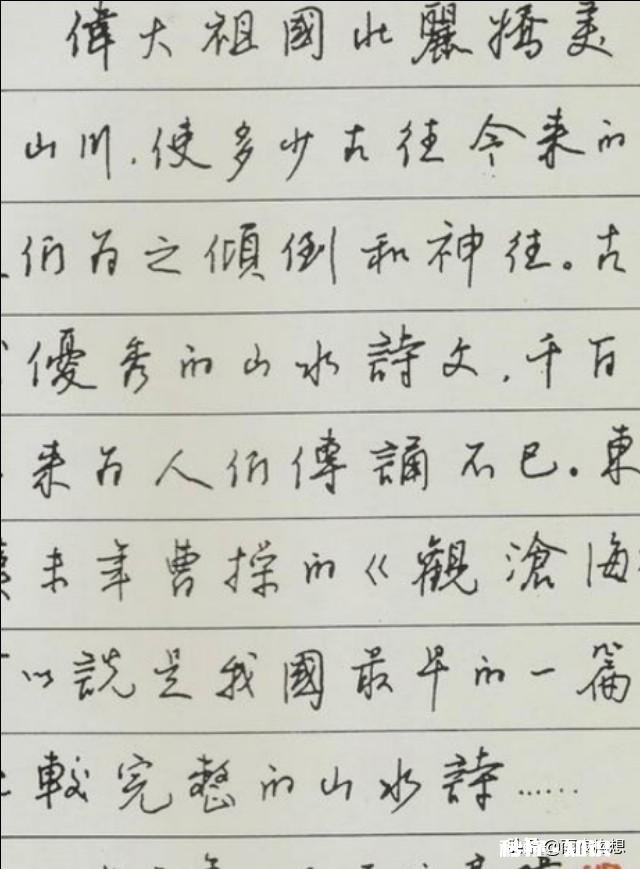 偉大祖國壯麗嬌美
山川，使多少古往今来的
们为之傾倒和神往。古
優秀的山水詩文，千百
来为人们傳誦不已。東
末年曹操的《觀滄海
以說是我國最早的一篇
較完整的山水詩……